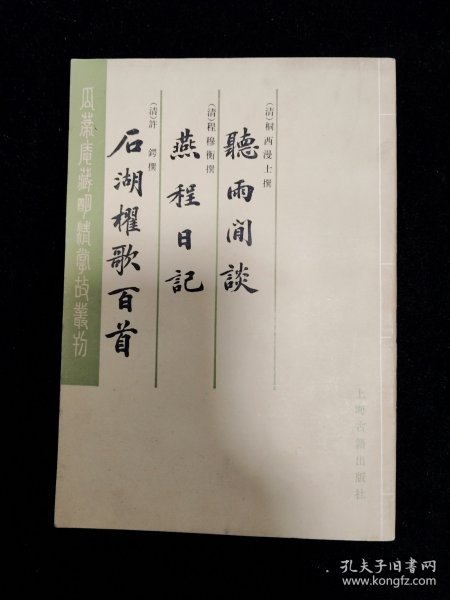 （清）桐西漫士撰
聽雨閒談
（清）程穆衡撰
燕程日記
（清）許 鍔撰
石湖櫂歌百首
瓜蒂庵藏明清掌故叢刊
上海古籍出版社
孔夫子旧书网
www.kongfz.com